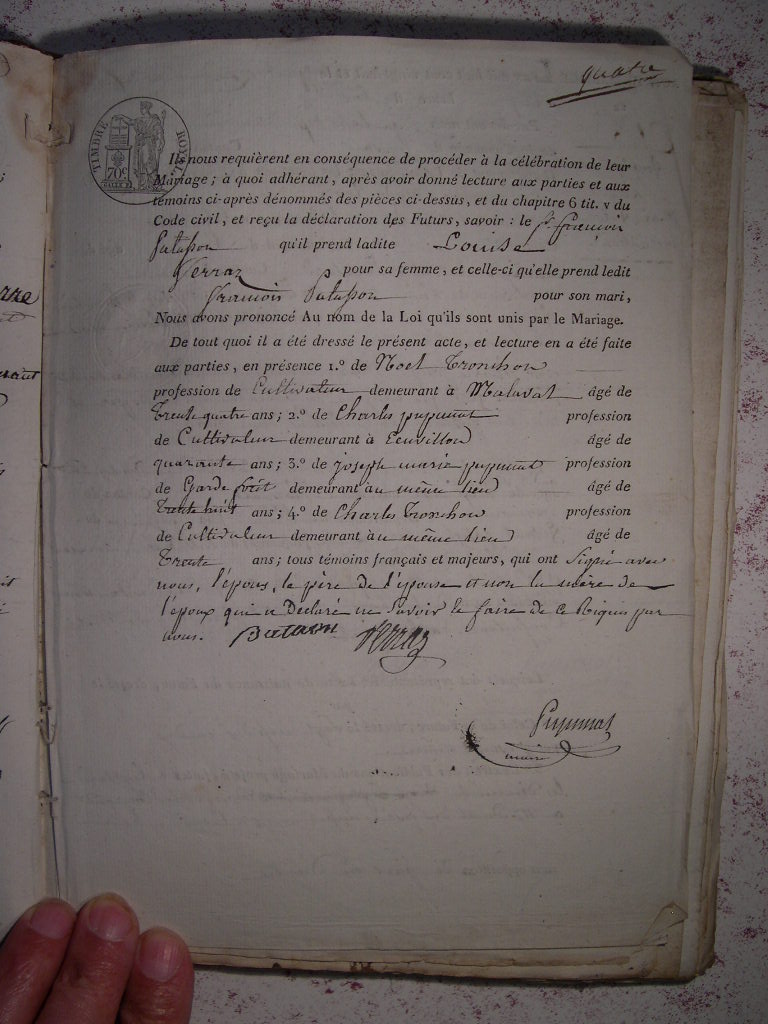 quatre
TIMBRE ROYAL
70c
Ils nous requièrent en conséquence de procéder à la célébration de leur
Mariage ; à quoi adhérant, après avoir donné lecture aux parties et aux
témoins ci-après dénommés des pièces ci-dessus, et du chapitre 6 tit. v du
Code civil, et reçu la déclaration des Futurs, savoir : le Sr françois
qu'il prend ladite Louise
Verraz pour sa femme, et celle-ci qu'elle prend ledit
françois pour son mari,
Nous avons prononcé Au nom de la Loi qu'ils sont unis par le Mariage.
De tout quoi il a été dressé le présent acte, et lecture en a été faite
aux parties, en présence 1.° de Noel Tronchon
profession de Cultivateur demeurant à Malaval âgé de
Trente quatre ans ; 2.° de Charles pupunat profession
de Cultivateur demeurant à âgé de
quarante ans ; 3.° de joseph marie pupunat profession
de Garde foret demeurant au même lieu âgé de
Trente huit ans ; 4.° de Charles Tronchon profession
de Cultivateur demeurant au même lieu âgé de
Trente ans ; tous témoins français et majeurs, qui ont Signé avec
nous, l'épous, le père de l'épouse et non la mère de
l'époux qui a Déclaré ne Savoir le faire de ce Requis par
nous. Verraz
Pupunat
maire